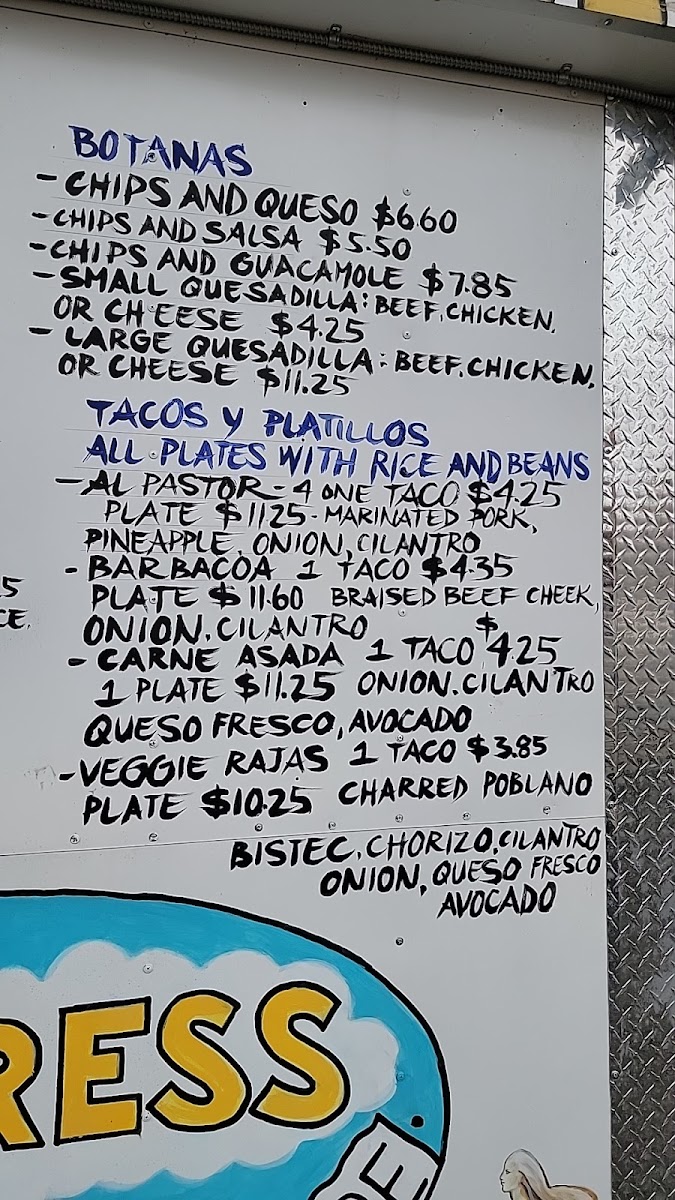 BOTANAS
- CHIPS AND QUESO $6.60
- CHIPS AND SALSA $5.50
- CHIPS AND GUACAMOLE $7.85
- SMALL QUESADILLA: BEEF, CHICKEN,
OR CHEESE $4.25
- LARGE QUESADILLA: BEEF, CHICKEN,
OR CHEESE $11.25
TACOS y PLATILLOS
ALL PLATES WITH RICE AND BEANS
- AL PASTOR - 4 ONE TACO $4.25
PLATE $11.25 - MARINATED PORK,
PINEAPPLE, ONION, CILANTRO
- BARBACOA 1 TACO $4.35
PLATE $11.60 BRAISED BEEF CHEEK,
ONION, CILANTRO
- CARNE ASADA 1 TACO $4.25
1 PLATE $11.25 ONION, CILANTRO
QUESO FRESCO, AVOCADO
- VEGGIE RAJAS 1 TACO $3.85
PLATE $10.25 CHARRED POBLANO
BISTEC, CHORIZO, CILANTRO
ONION, QUESO FRESCO
AVOCADO
RESS